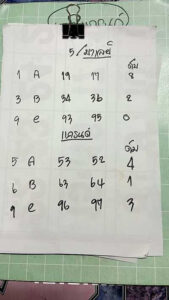 5/มาเลย์
ดับ
1 A 19 17 8
3 B 34 36 2
9 C 93 95 0
แดนดี
ดับ
5 A 53 52 4
6 B 63 64 1
9 C 96 97 3